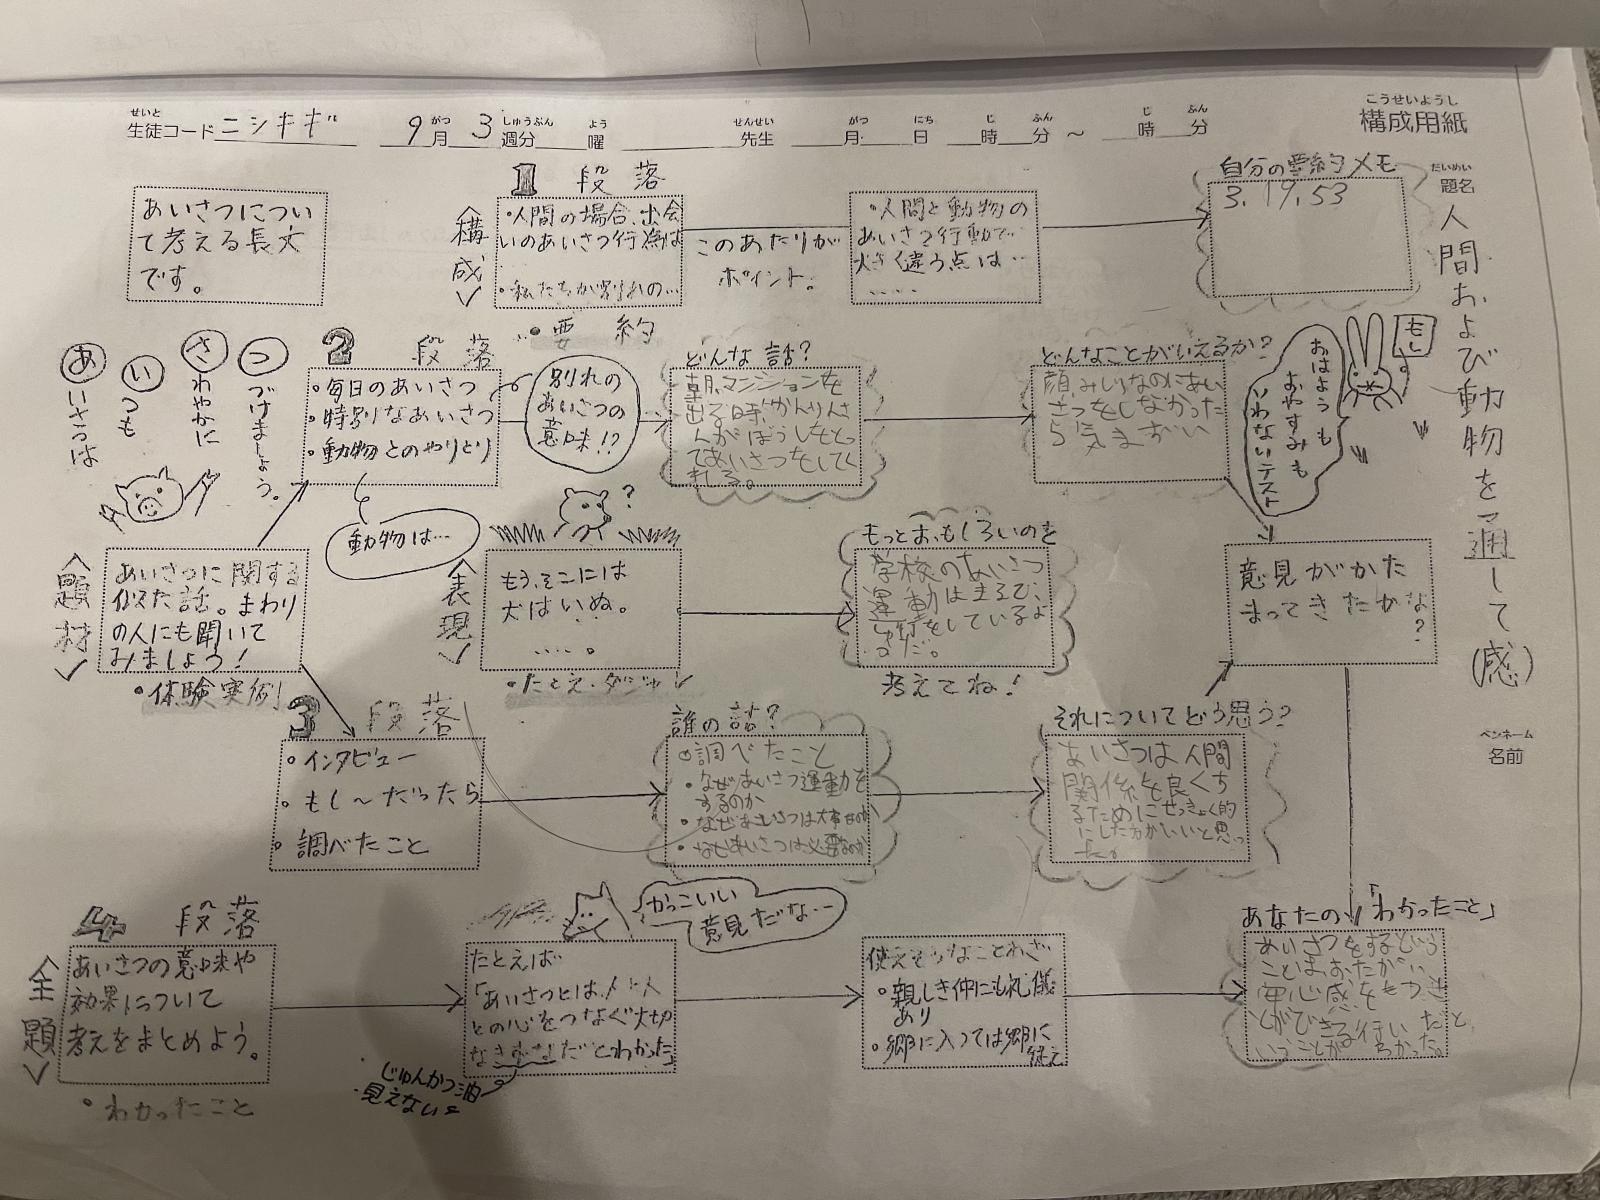 こうせいようし
構成用紙
せいと がつ しゅうぶん よう せんせい がつ にち じ ふん じ ふん
生徒コード ニシキギ 9月 3週分 曜 先生 月 日 時 分 ～ 時 分
だいめい
題名
人間および動物を通して(感)
ペンネーム
名前
あいさつについ
て考える長文
です。
1 段落
<構成>
・人間の場合、出会
いのあいさつ行為は
・私たちが別れの…
・要約
このあたりが
ポイント。
・人間と動物の
あいさつ行動で…
大きく違う点は…
‥‥
自分の要約メモ
3.19.53
あいさつは
いつも
さわやかに
つづけましょう。
2 段落
・毎日のあいさつ
・特別なあいさつ
・動物とのやりとり
別れの
あいさつの
意味!?
動物は…
どんな話?
朝、マンションを
出る時、かんりんさ
んがぼうしをとっ
てあいさつをしてく
れる。
どんなことがいえるか?
顔みしりなのにあい
さつをしなかった
ら気まずい
もし。
おはようも
おやすみも
いわないテスト
<題材>
あいさつに関する
似た話。まわり
の人にも聞いて
みましょう!
・体験実例
<表現>
?
もう、そこには
犬はいぬ。
‥‥。
・たとえ・ダジャレ
もっとおもしろいのを
学校のあいさつ
運動はまるで、
をしているよ
うだ。
考えてね!
意見がかた
まってきたかな?
3 段落
・インタビュー
・もし～だったら
・調べたこと
誰の話?
◎調べたこと
・なぜあいさつ運動を
するのか
・なぜあいさつは大事なのか
・なぜあいさつは必要なのか
それについてどう思う?
あいさつは人間
関係を良くす
るためにせっきょく的
にした方がいいと思っ
た。
4 段落
<全題>
あいさつの意味や
効果について
考えをまとめよう。
・わかったこと
かっこいい
意見だな…
たとえば
「あいさつとは、人と人
との心をつなぐ大切
なきずなだとわかった」
じゅんかつ油
見えない
使えそうなことわざ
・親しき仲にも礼儀
あり
・郷に入っては郷に
従え
あなたの「わかったこと」
あいさつをするという
ことは、おたがい
安心感をもつこ
とができる行いだと
いうことがわかった。